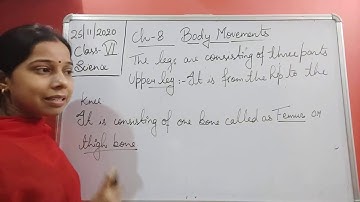 25/11/2020
Class-VI
Science
Ch-8 Body Movements
The legs are consisting of three parts
Upper leg :- It is from the hip to the
Knee
It is consisting of one bone called as Femur or
thigh bone